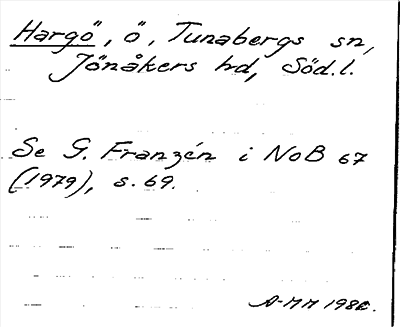 Hargö, ö, Tunabergs sn,
Jönåkers hd, Söd.l.
Se G. Franzén i NoB 67
(1979), s. 69.
A-MM